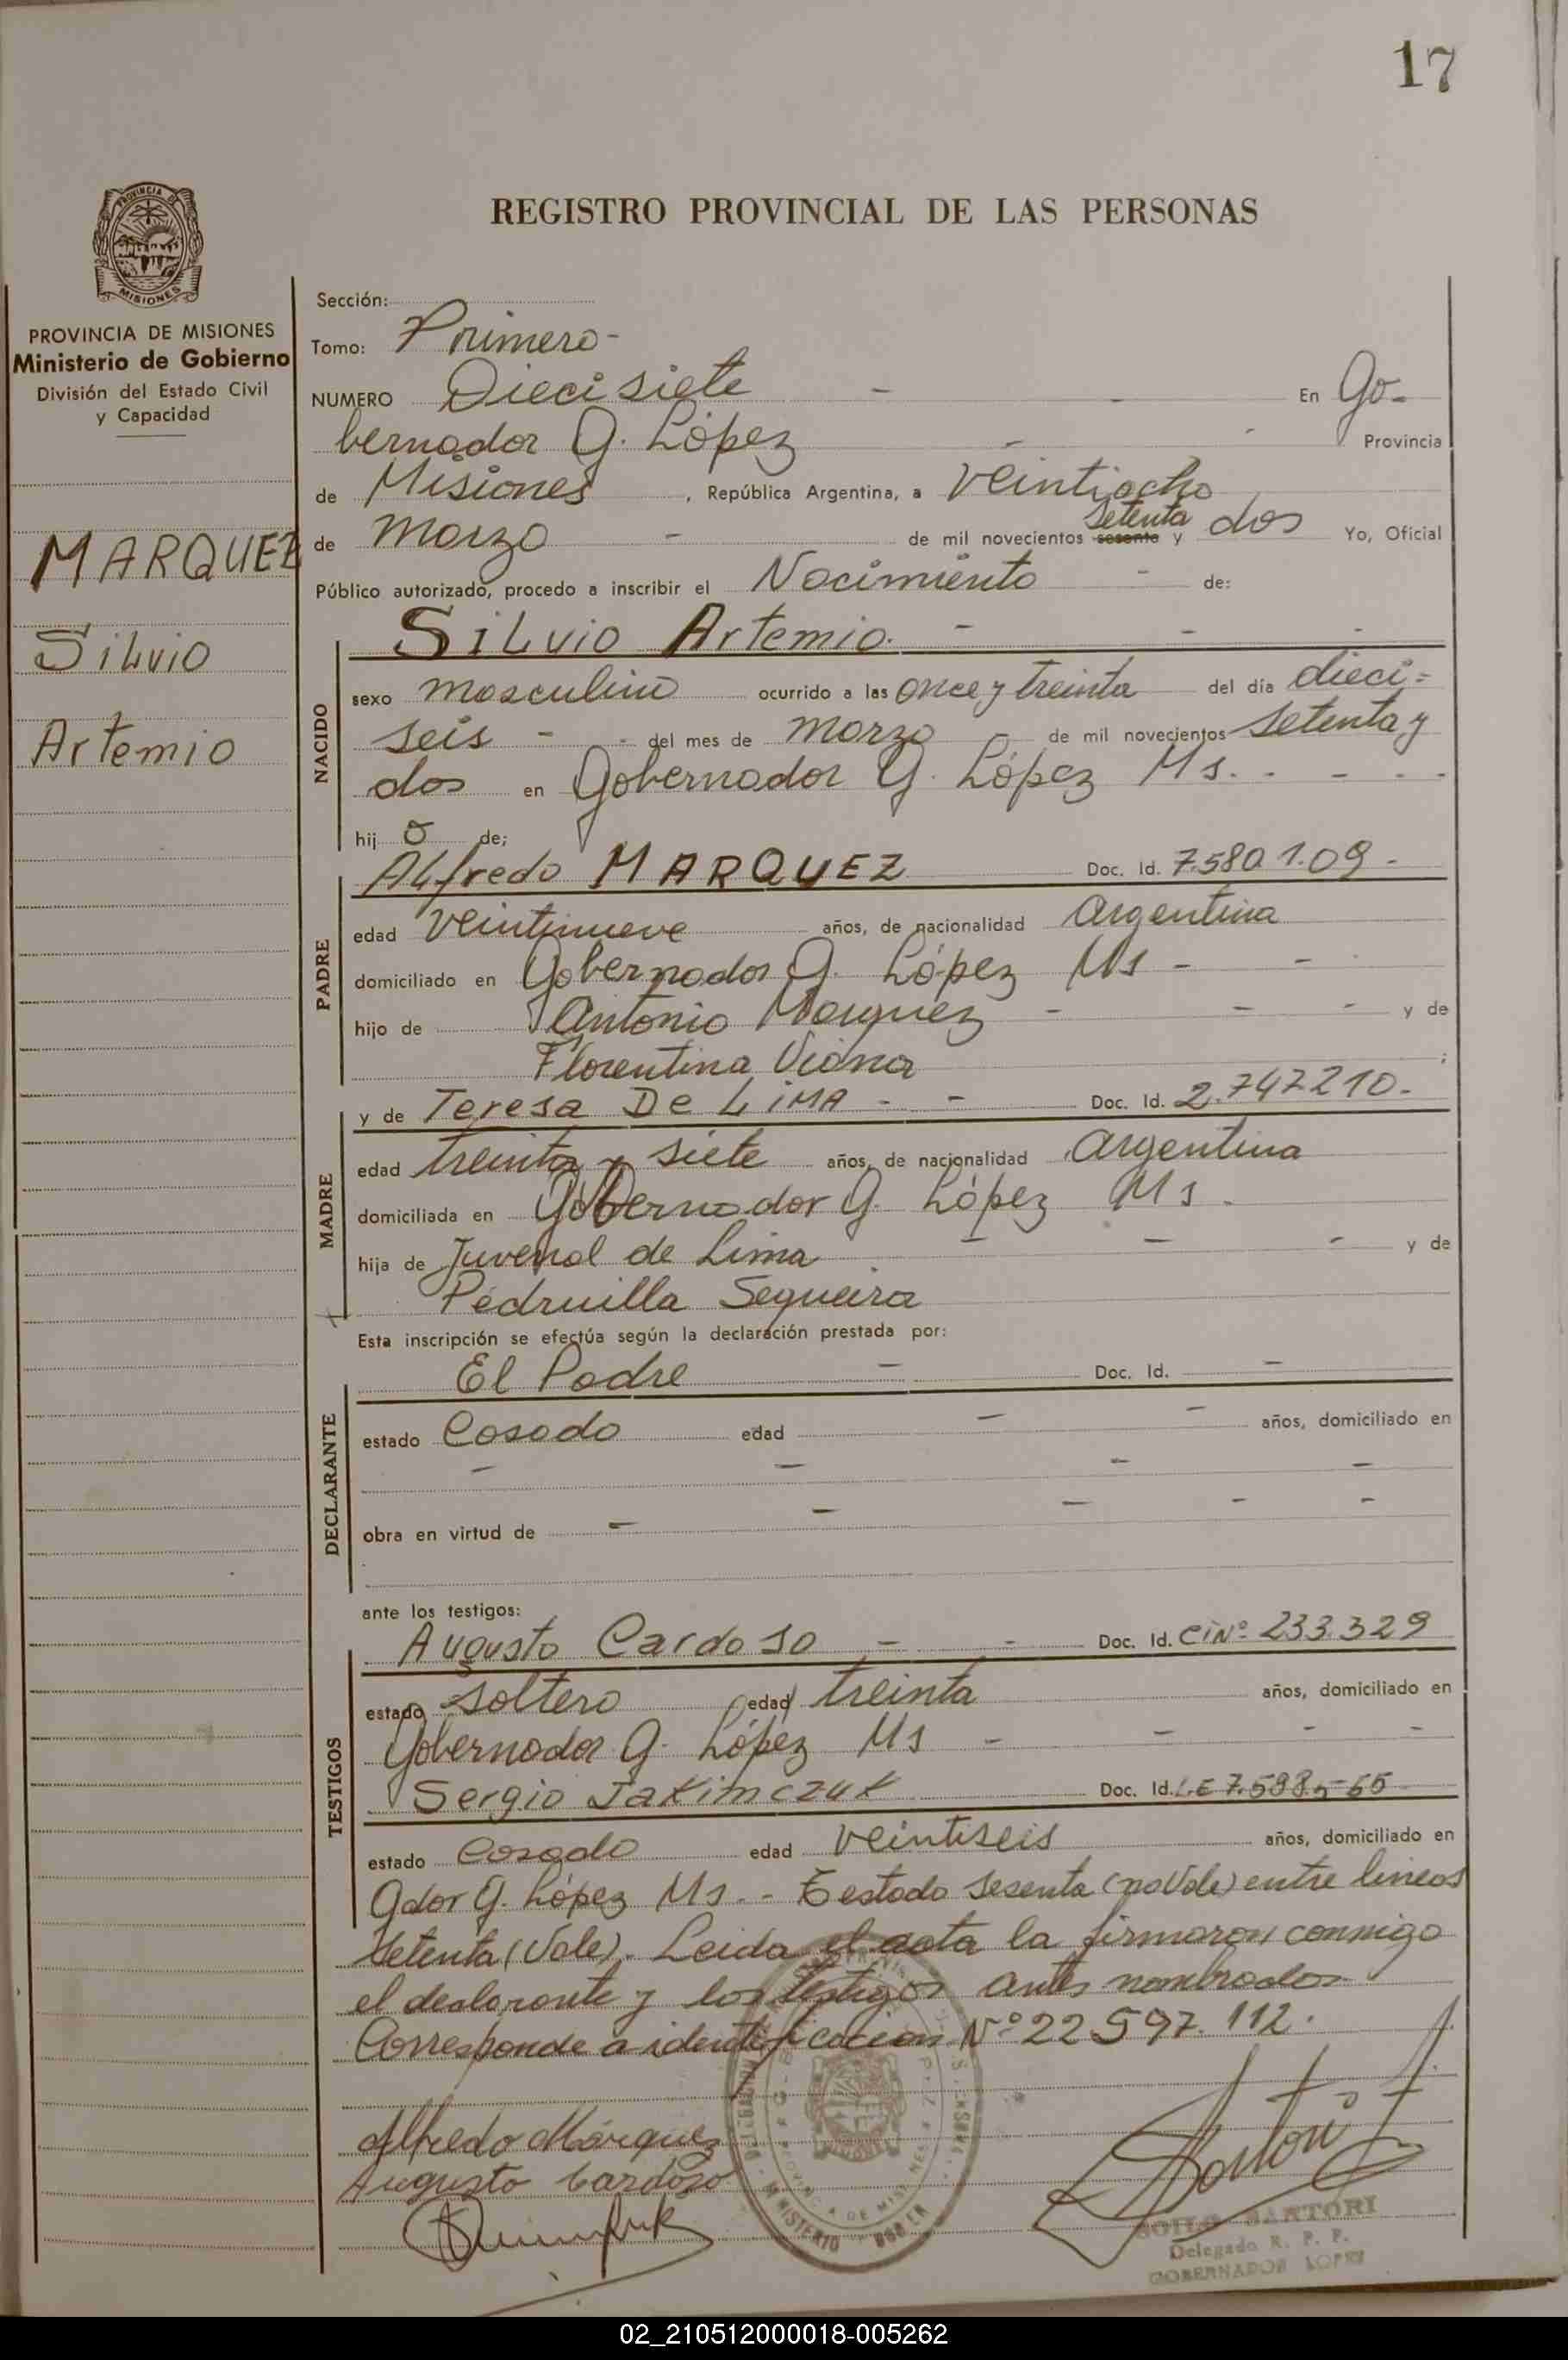 17
PROVINCIA DE
MISIONES
PROVINCIA DE MISIONES
Ministerio de Gobierno
División del Estado Civil
y Capacidad
MARQUEZ
Silvio
Artemio
REGISTRO PROVINCIAL DE LAS PERSONAS
Sección:
Tomo: Primero -
NUMERO Diecisiete - - En Go-
bernador G. López - - Provincia
de Misiones , República Argentina, a veintiocho
setenta
de marzo - de mil novecientos sesenta y dos Yo, Oficial
Público autorizado, procedo a inscribir el Nacimiento - de:
Silvio Artemio. - - -
NACIDO
sexo masculino ocurrido a las once y treinta del día dieci-
seis - - del mes de marzo - de mil novecientos setenta y
dos en Gobernador G. López Ms. - - - -
hij o de;
PADRE
Alfredo MARQUEZ Doc. Id. 7.580.109 -
edad veintinueve años, de nacionalidad Argentina
domiciliado en Gobernador G. López Ms - - -
hijo de Antonio Marquez - - - y de
Florentina Viana ;
MADRE
y de Teresa De LiMA - - Doc. Id. 2.747210-
edad treinta y siete años, de nacionalidad Argentina
domiciliada en Gobernador G. López Ms -
hija de Juvenal de Lima - - - y de
Pedruilla Sequeira
Esta inscripción se efectúa según la declaración prestada por:
DECLARANTE
El Padre - Doc. Id. -
estado Casado edad - - años, domiciliado en
- - - -
obra en virtud de - - - - -
ante los testigos:
TESTIGOS
Augusto Cardoso - - Doc. Id. CiNº 233.329
estado soltero edad treinta años, domiciliado en
Gobernador G. López Ms - - - -
Sergio Jakimczuk Doc. Id. LE
estado Casado edad veintiseis años, domiciliado en
Gdor G. López Ms. - Testado sesenta (no Vale) entre lineas
setenta (Vale). Leida el acta la firmaron conmigo
el declarante y los testigos antes nombrados
Corresponde a identificacion Nº 22.597.112.
Alfredo Márquez
Augusto Cardozo
SARTORI
Delegado R. P. P.
GOBERNADOR LOPEZ
02_210512000018-005262